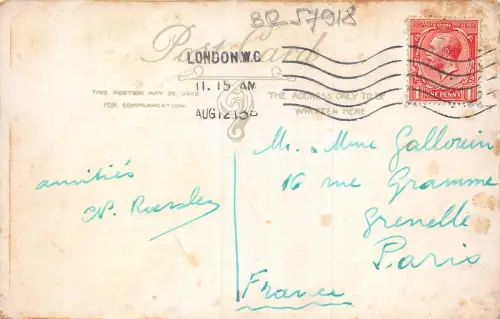 BR 57918
Post Card
LONDON.W.C
11. 15 AM
AUG 12
THIS PORTION MAY BE USED
FOR COMMUNICATION.
THE ADDRESS ONLY TO BE
WRITTEN HERE
ONE PENNY
M. & Mme Gallouin
16 rue Gramme
Grenelle
Paris
France
amitiés